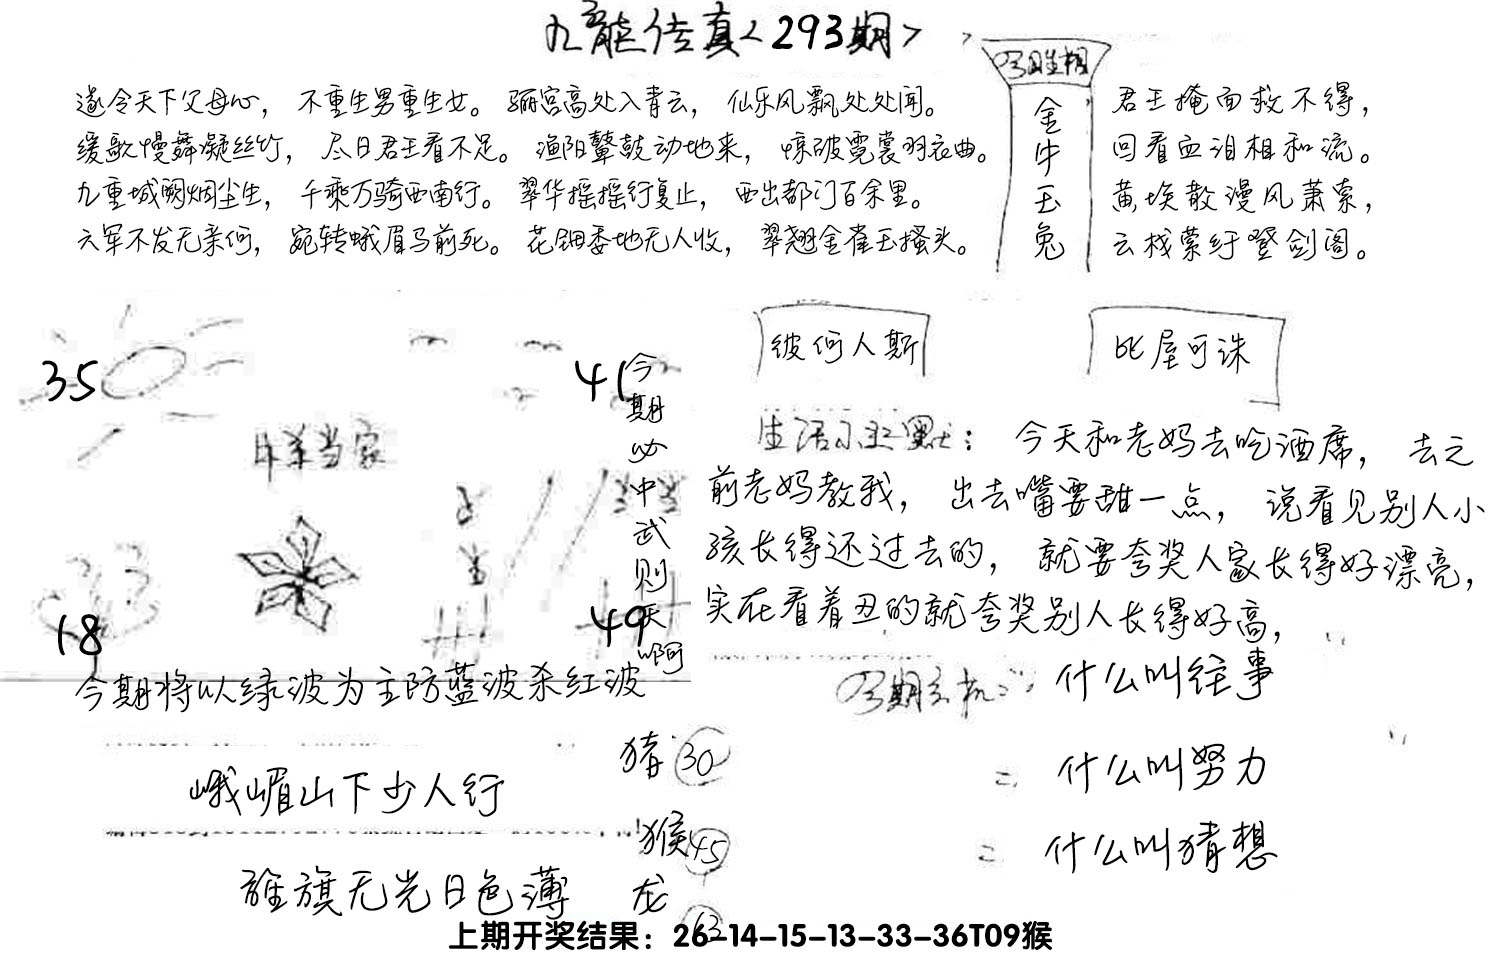 九龙传真<293期>
今日生相
金牛玉兔
遂令天下父母心，不重生男重生女。骊宫高处入青云，仙乐风飘处处闻。
缓歌慢舞凝丝竹，尽日君王看不足。渔阳鼙鼓动地来，惊破霓裳羽衣曲。
九重城阙烟尘生，千乘万骑西南行。翠华摇摇行复止，西出都门百余里。
六军不发无奈何，宛转蛾眉马前死。花钿委地无人收，翠翘金雀玉搔头。
君王掩面救不得，
回看血泪相和流。
黄埃散漫风萧索，
云栈萦纡登剑阁。
35
41
18
49
今期必中武则天啊
今期将以绿波为主防蓝波杀红波
彼何人斯
比屋可诛
生活小幽默：今天和老妈去吃酒席，去之
前老妈教我，出去嘴要甜一点，说看见别人小
孩长得还过去的，就要夸奖人家长得好漂亮，
实在看着丑的就夸奖别人长得好高，
今期玄机：什么叫往事
= 什么叫努力
= 什么叫猜想
峨嵋山下少人行
旌旗无光日色薄
猪 30
猴 45
龙 63
上期开奖结果：26-14-15-13-33-36T09猴